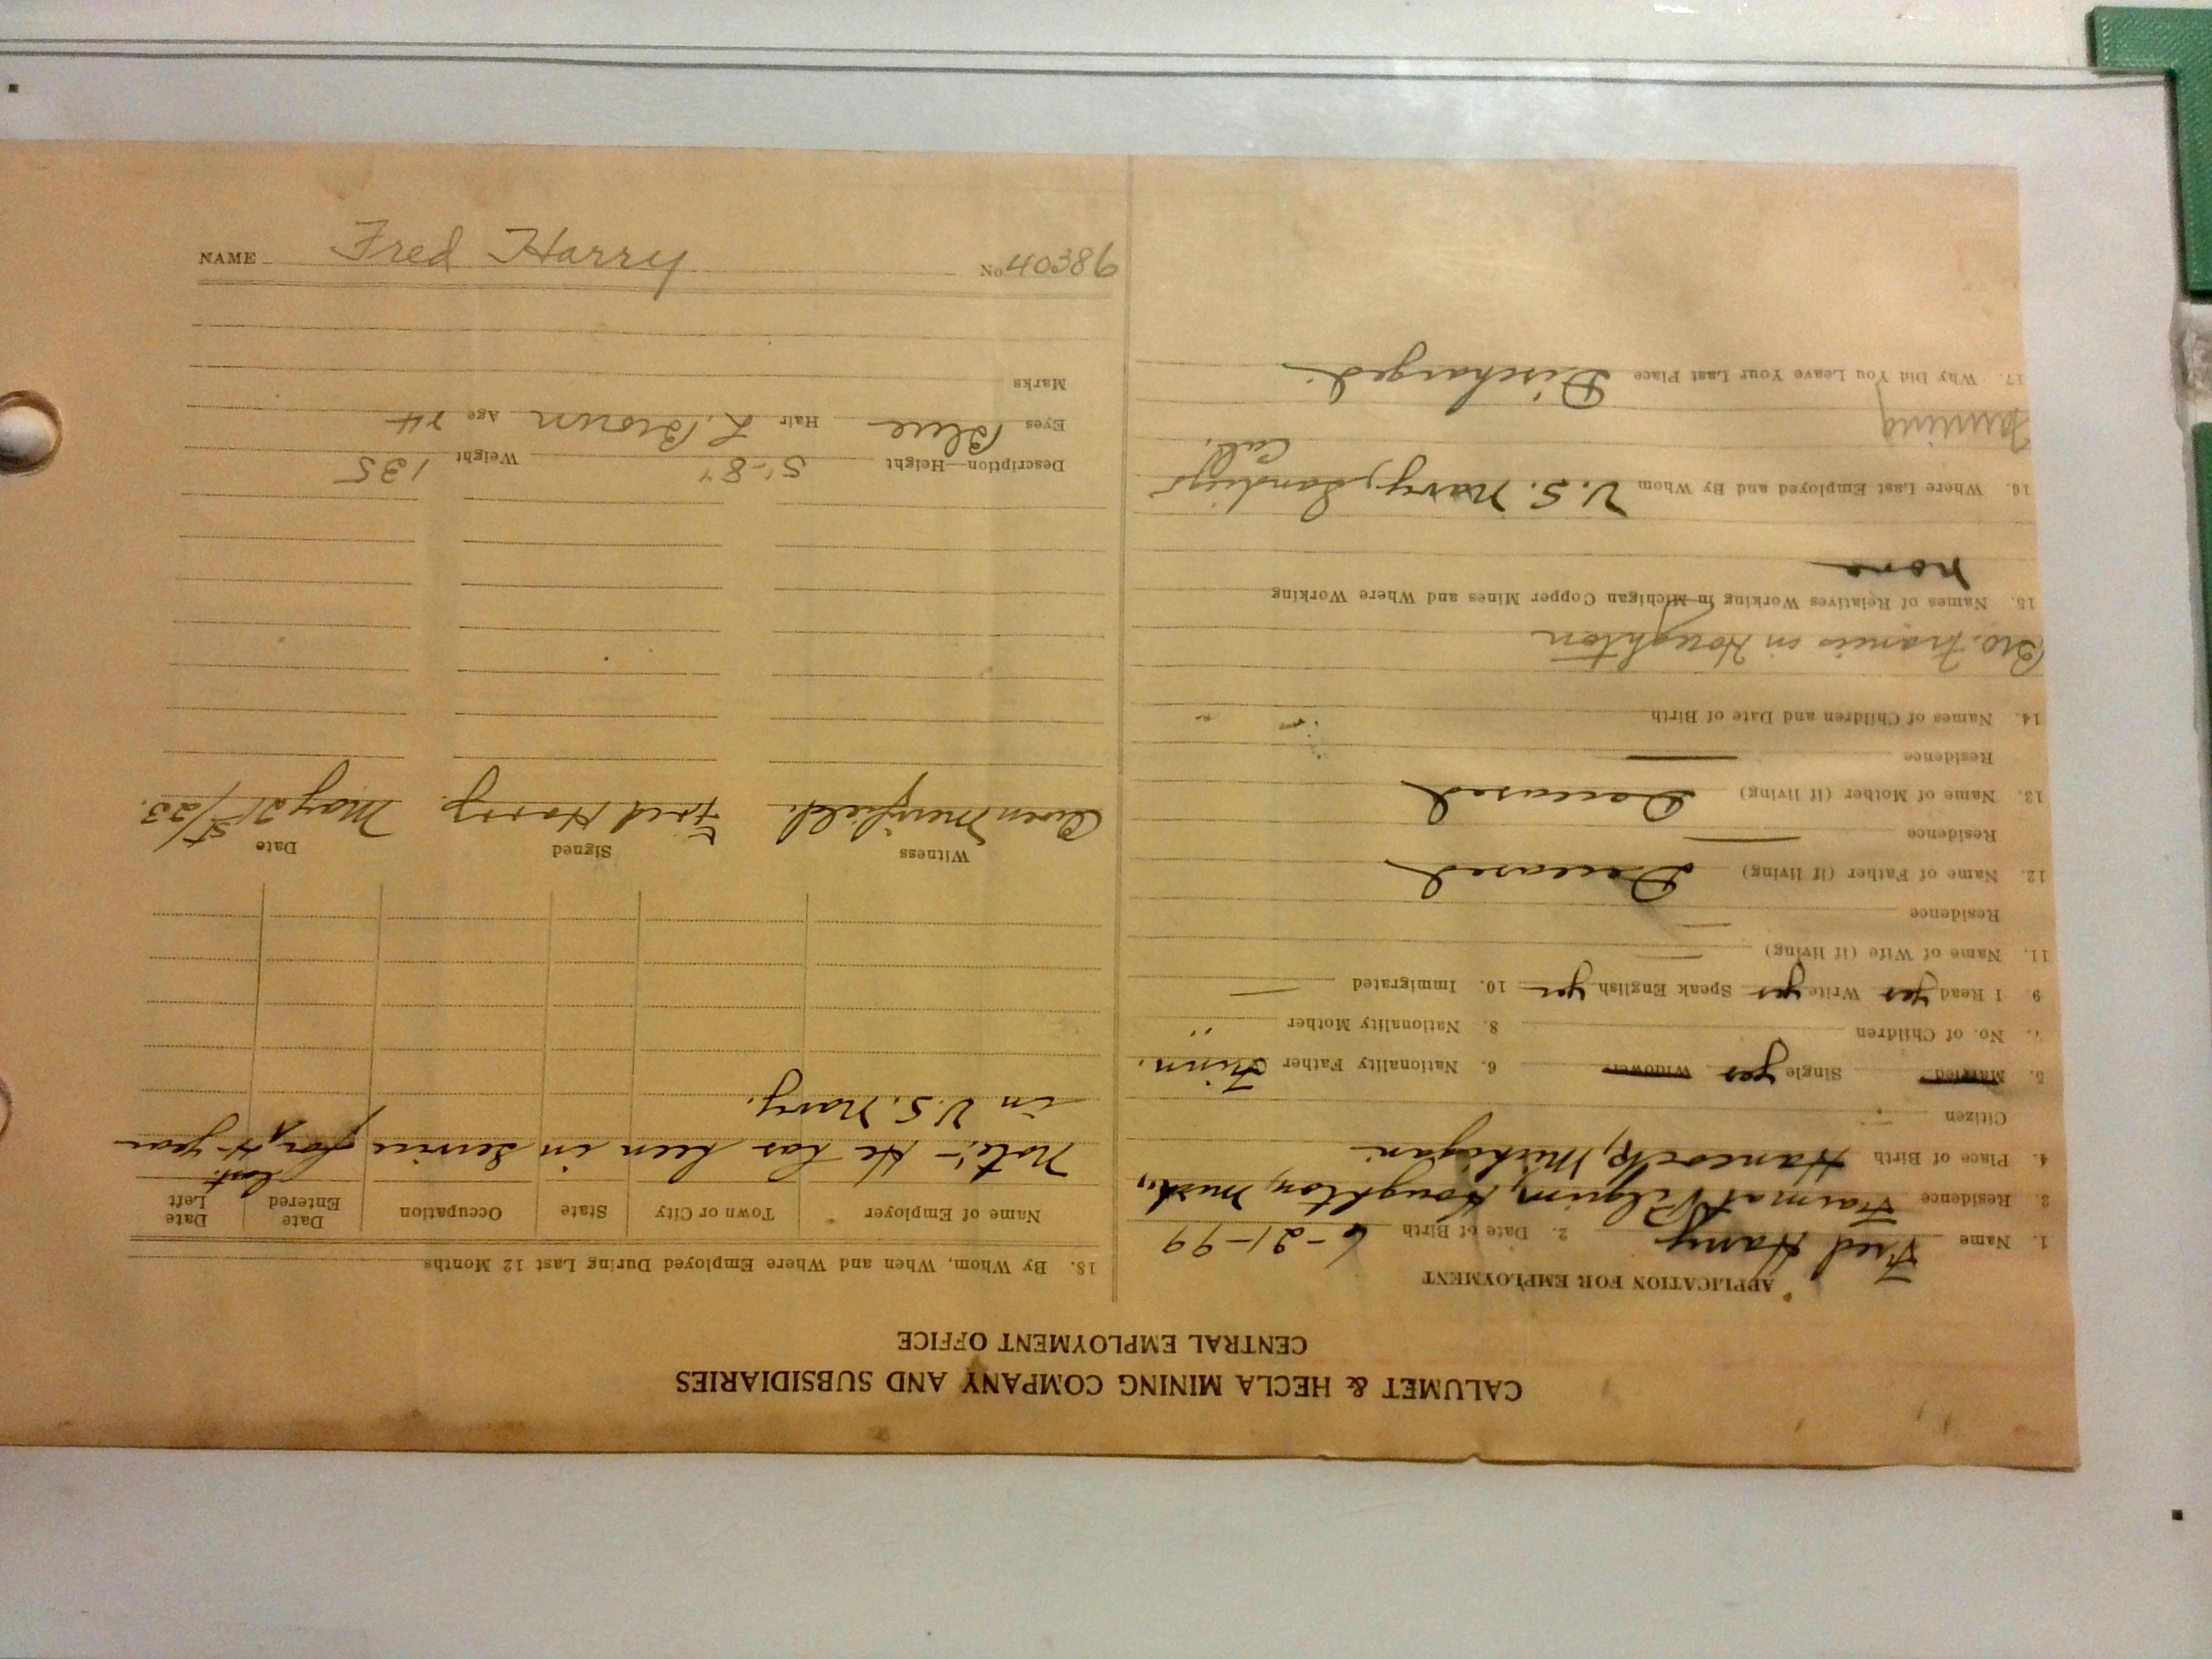 CALUMET & HECLA MINING COMPANY AND SUBSIDIARIES
CENTRAL EMPLOYMENT OFFICE
APPLICATION FOR EMPLOYMENT
1. Name Fred Harry 2. Date of Birth 6-21-99
3. Residence Farm at Pilgrim, Houghton, Mich.,
4. Place of Birth Hancock, Michigan.
Citizen
5. Married Single yes Widower 6. Nationality Father Finn.
7. No. of Children 8. Nationality Mother "
9 I Read yes Write yes Speak English yes 10. Immigrated —
11. Name of Wife (if living) —
Residence —
12. Name of Father (if living) Deceased
Residence —
13. Name of Mother (if living) Deceased
Residence —
14. Names of Children and Date of Birth
Bro. Francis in Houghton
15. Names of Relatives Working in Michigan Copper Mines and Where Working
none
16. Where Last Employed and By Whom U.S. Navy, Sandiego
Cal.
Farming
17. Why Did You Leave Your Last Place Discharged.
18. By Whom, When and Where Employed During Last 12 Months
Name of Employer Town or City State Occupation Date Entered Date Left
Note:- He has been in service for last 4-year
in U.S. Navy.
Witness Signed Date
Owen Merrfield. Fred Harry. May 21st/23.
Description—Height 5'-8" Weight 135
Eyes Blue Hair L. Brown Age 24
Marks
NAME Fred Harry No. 40386